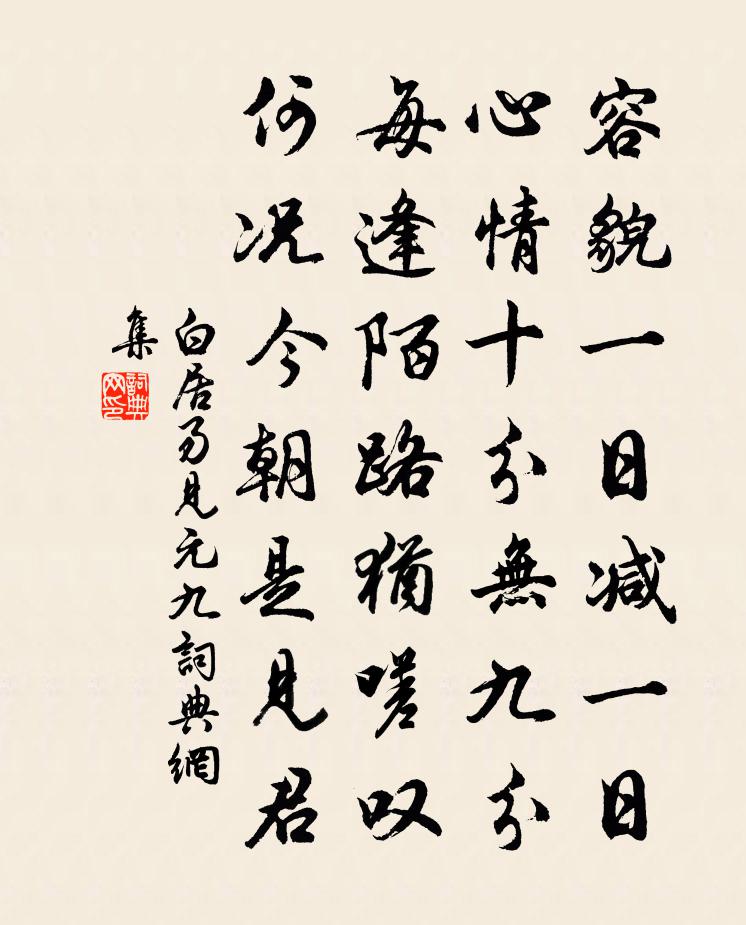 容貌一日减一日
心情十分無九分
每逢陌路猶嗟叹
何况今朝是見君
白居易見元九詞典網
集
詞典
网印